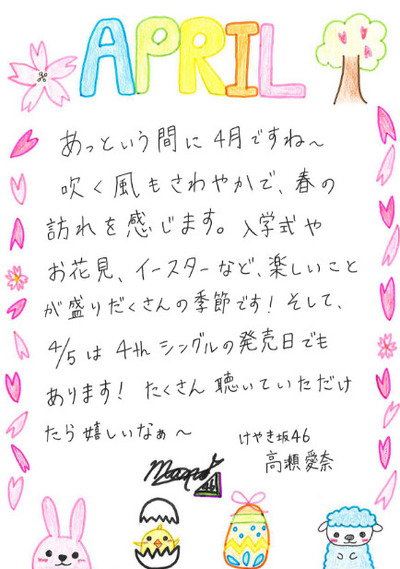 APRIL
あっという間に4月ですね〜
吹く風もさわやかで、春の
訪れを感じます。入学式や
お花見、イースターなど、楽しいこと
が盛りだくさんの季節です！そして、
4/5は4thシングルの発売日でも
あります！たくさん聴いていただけ
たら嬉しいなぁ〜
けやき坂46
高瀬愛奈